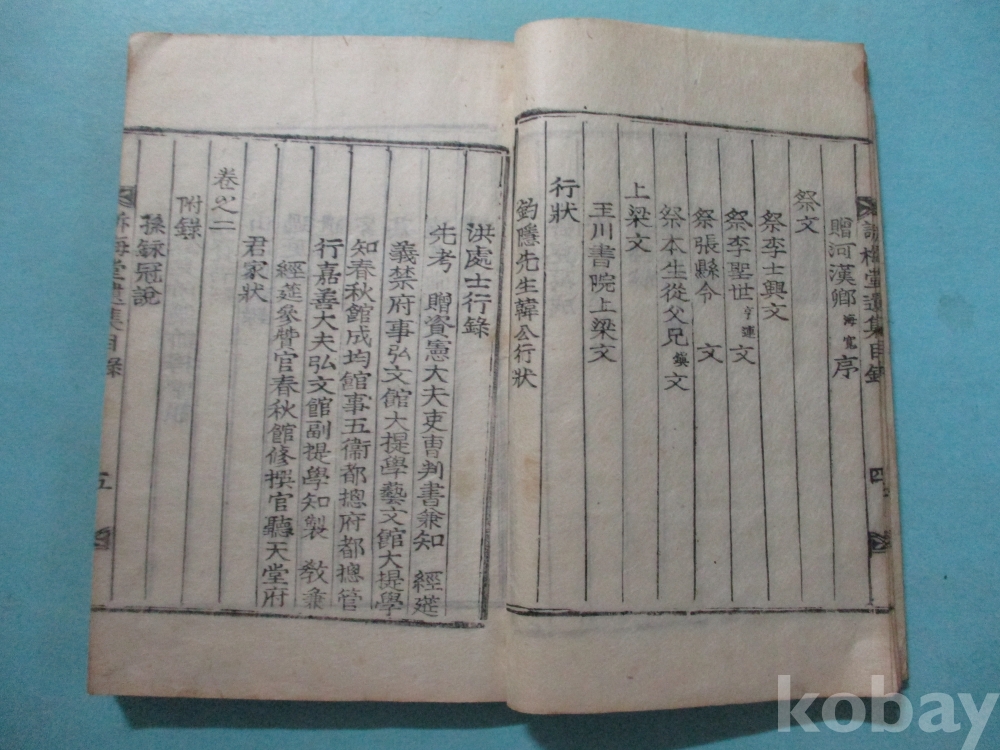 贈河漢鄉海寬序
祭文
祭李士興文
祭李聖世亨連文
祭張縣令 文
祭本生從父兄 文
上梁文
玉川書院上梁文
行狀
釣隱先生韓公行狀
洪處士行錄
先考 贈資憲大夫吏曹判書兼知 經筵
義禁府事弘文館大提學藝文館大提學
知春秋館成均館事五衛都摠府都摠管
行嘉善大夫弘文館副提學知製 敎兼
經筵參贊官春秋館修撰官聽天堂府
君家狀
卷之二
附錄
孫 冠說
堂遺集目錄
五
kobay